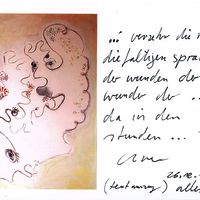 ... versehr die m
die faltigen spra
der wunden der
wunder der ..
da in den
stunden ...
26.10.
(textauszug) alles